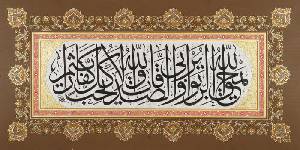 يمحق الله الربوا ويربي الصدقات والله لا يحب كل كفار أثيم